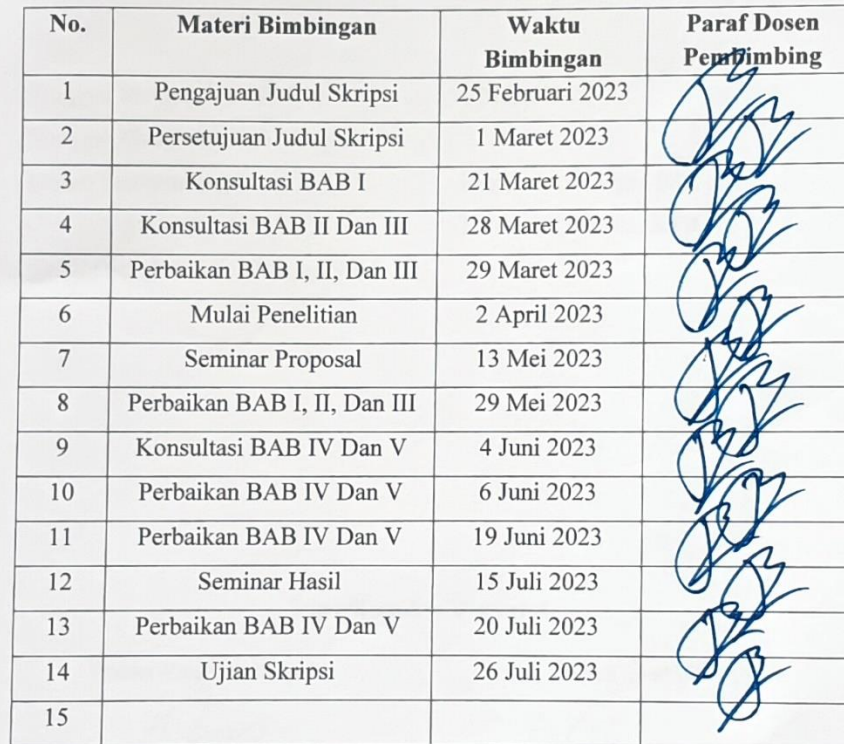 No. Materi Bimbingan Waktu Bimbingan Paraf Dosen Pembimbing
1 Pengajuan Judul Skripsi 25 Februari 2023
2 Persetujuan Judul Skripsi 1 Maret 2023
3 Konsultasi BAB I 21 Maret 2023
4 Konsultasi BAB II Dan III 28 Maret 2023
5 Perbaikan BAB I, II, Dan III 29 Maret 2023
6 Mulai Penelitian 2 April 2023
7 Seminar Proposal 13 Mei 2023
8 Perbaikan BAB I, II, Dan III 29 Mei 2023
9 Konsultasi BAB IV Dan V 4 Juni 2023
10 Perbaikan BAB IV Dan V 6 Juni 2023
11 Perbaikan BAB IV Dan V 19 Juni 2023
12 Seminar Hasil 15 Juli 2023
13 Perbaikan BAB IV Dan V 20 Juli 2023
14 Ujian Skripsi 26 Juli 2023
15